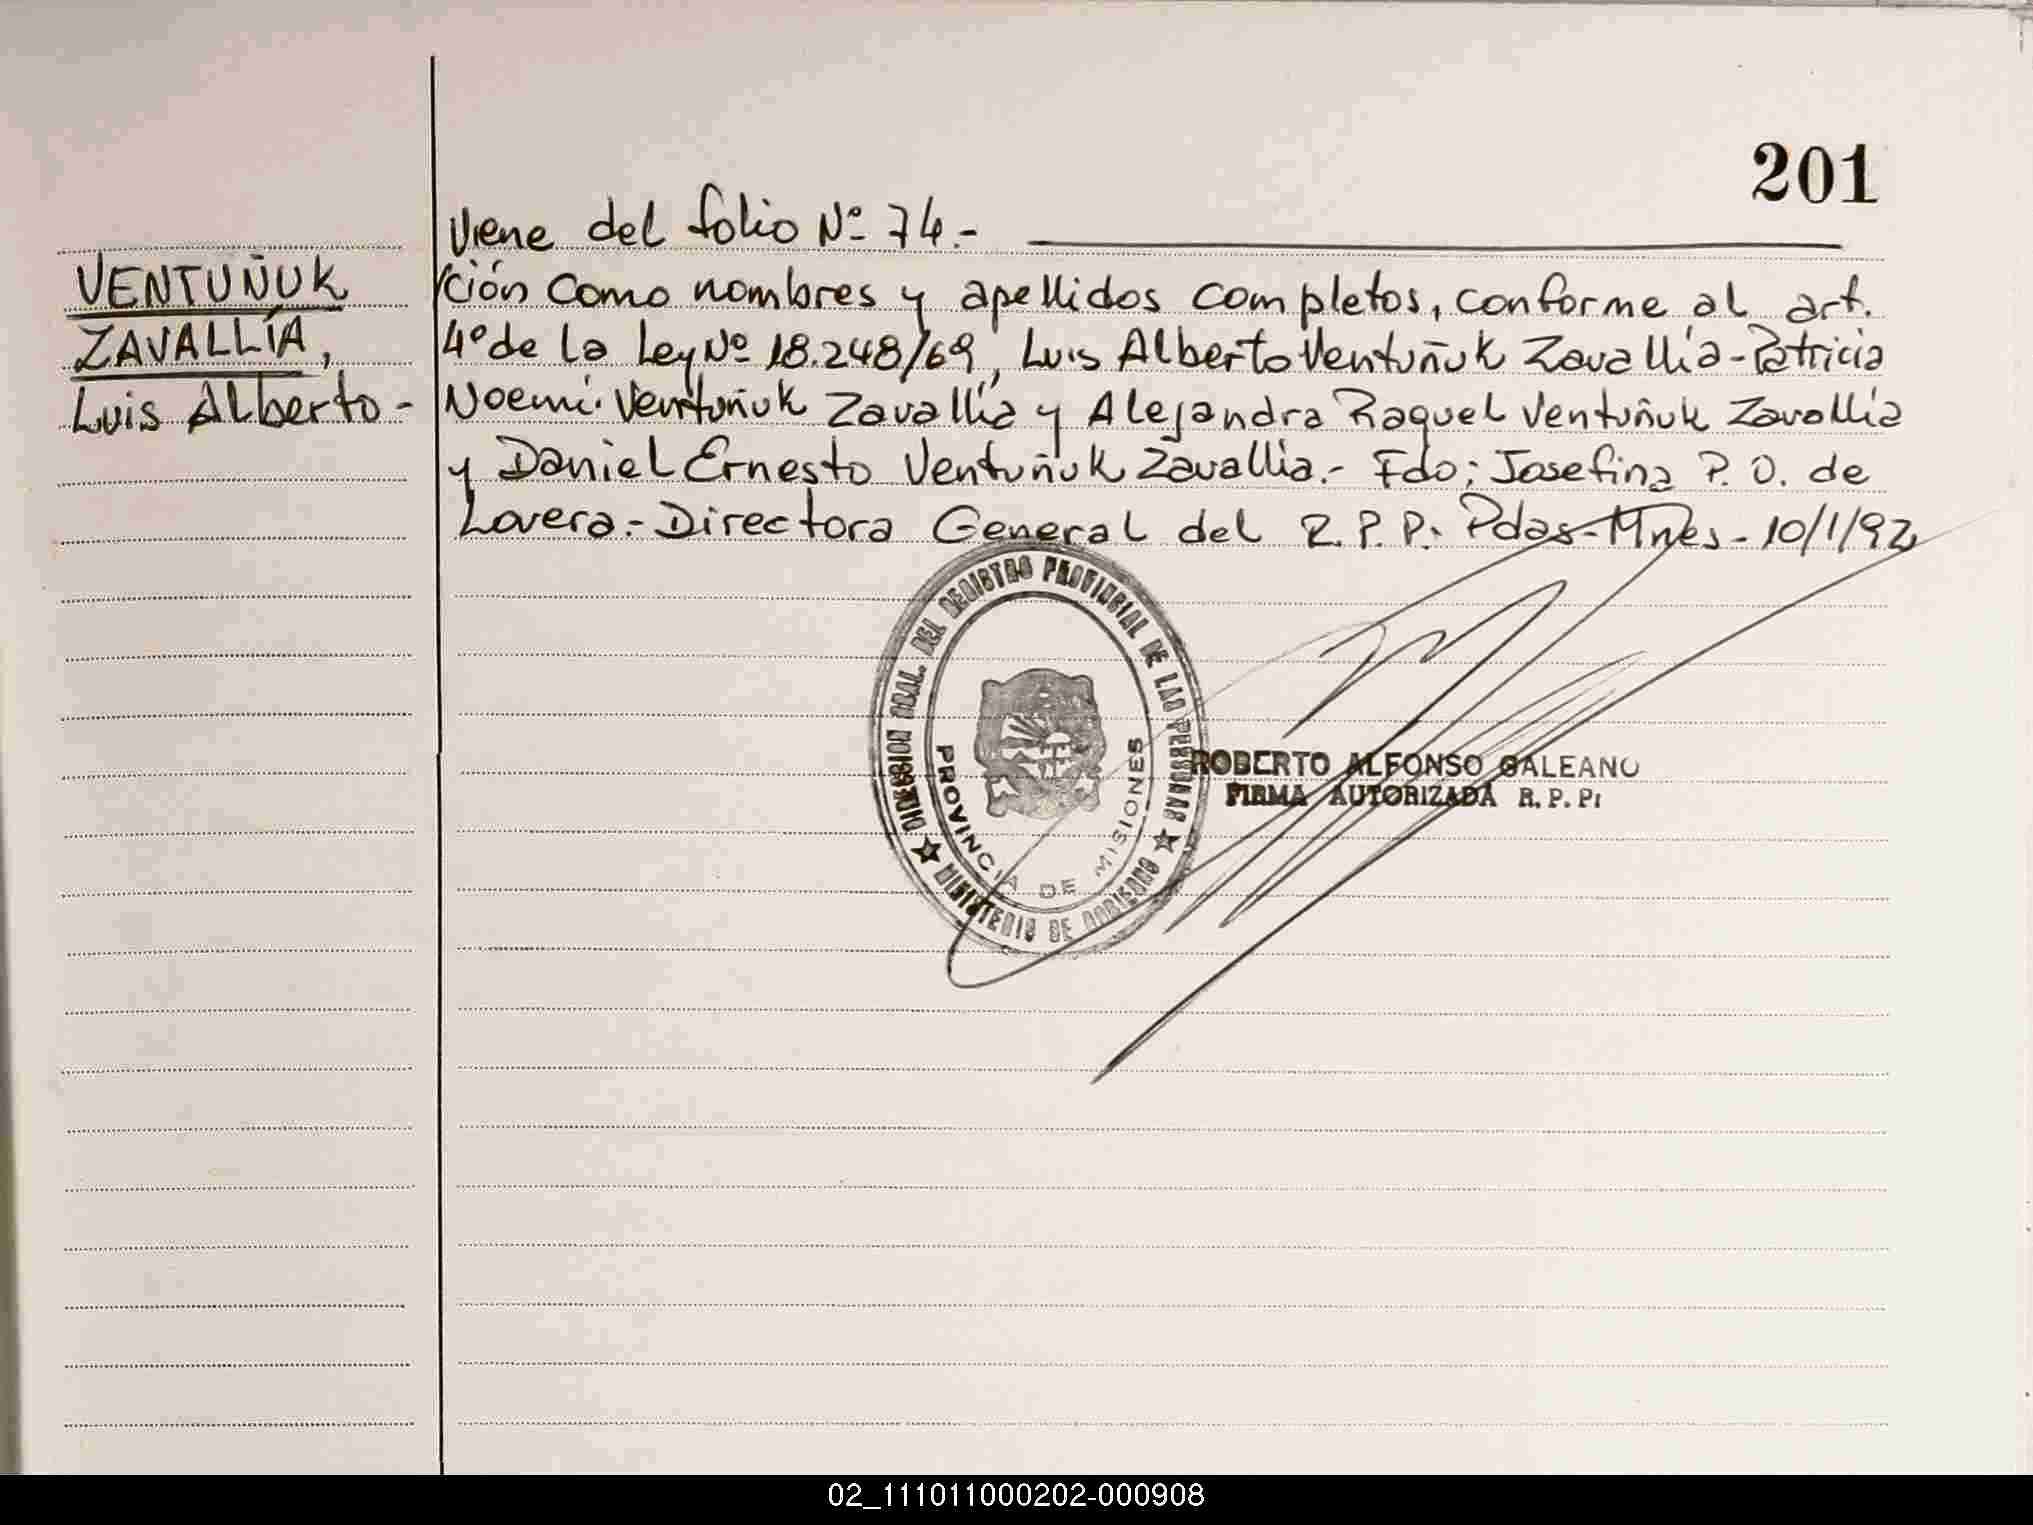 201
Viene del folio Nº 74.-
VENTUÑUK
ZAVALLÍA,
Luis Alberto-
ción como nombres y apellidos completos, conforme al art.
4º de la Ley Nº 18.248/69, Luis Alberto Ventuñuk Zavallía-Patricia
Noemí Ventuñuk Zavallía y Alejandra Raquel Ventuñuk Zavallía
y Daniel Ernesto Ventuñuk Zavallia.- Fdo: Josefina P. O. de
Lovera.- Directora General del R.P.P. Pdas-Mnes- 10/1/92
DIRECCION GRAL. DEL REGISTRO PROVINCIAL DE LAS PERSONAS
MINISTERIO DE GOBIERNO
PROVINCIA DE MISIONES
ROBERTO ALFONSO GALEANO
FIRMA AUTORIZADA R. P. P.
02_111011000202-000908